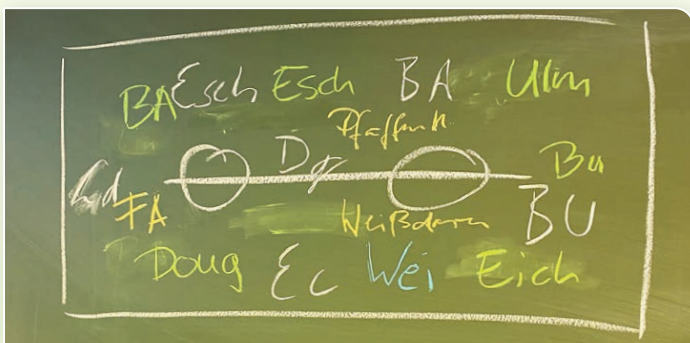 BA Esch Esch BA Ulm
Pfaffenh
Dg Bu
FA Weißdorn BU
Doug Ec Wei Eich